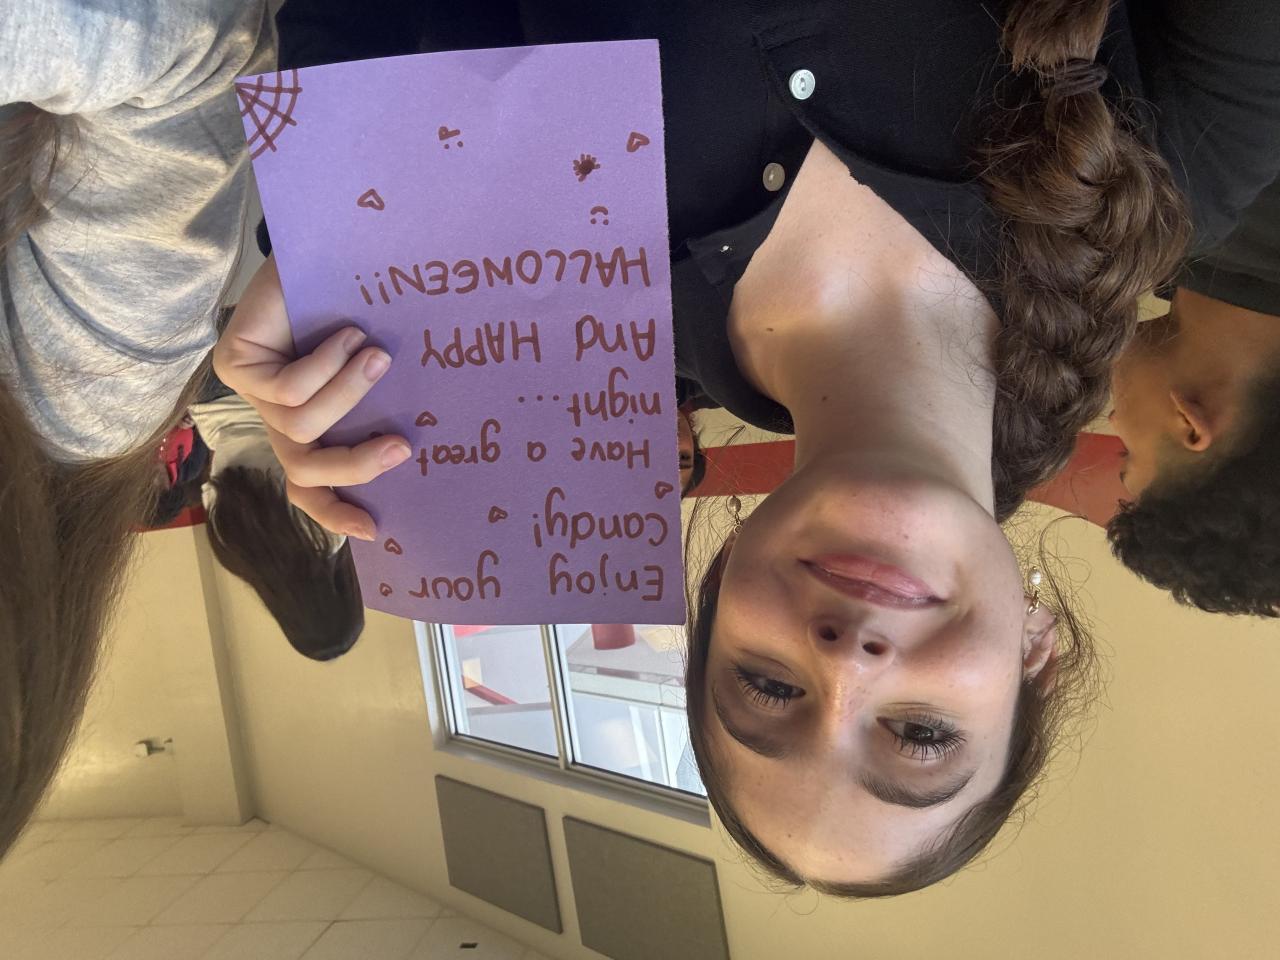 Enjoy your
Candy!
Have a great
night...
And HAPPY
HALLOWEEN!!
:)
:P